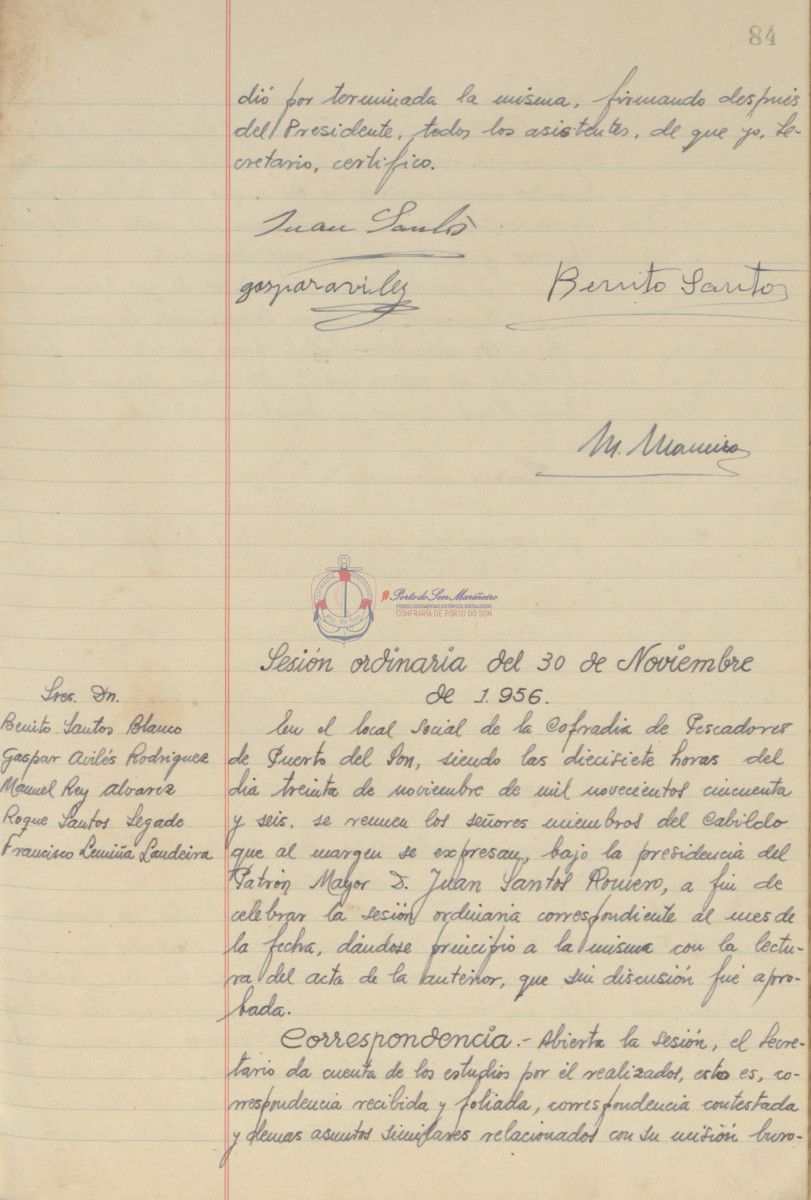 84
dió por terminada la misma, firmando después
del Presidente, todos los asistentes, de que yo, Se-
cretario, certifico.
Juan Santos
gasparaviles
Benito Santos
M. Maneiro
#PortodoSonMariñeiro
FONDOS DOCUMENTAIS HISTÓRICOS DIXITALIZADOS
CONFRARÍA DE PORTO DO SON
Sesión ordinaria del 30 de Noviembre
de 1.956.
Sres. Dn.
Benito Santos Blanco
Gaspar Avilés Rodriguez
Manuel Rey Alvarez
Roque Santos Segade
Francisco Lemiña Landeira
En el local social de la Cofradia de Pescadores
de Puerto del Son, siendo las diecisiete horas del
dia treinta de noviembre de mil novecientos cincuenta
y seis, se reunen los señores miembros del Cabildo
que al margen se expresan, bajo la presidencia del
Patrón Mayor D. Juan Santos Romero, a fin de
celebrar la sesión ordinaria correspondiente al mes de
la fecha, dándose principio a la misma con la lectu-
ra del acta de la anterior, que sin discusión fué apro-
bada.
Correspondencia.- Abierta la sesión, el Secre-
tario da cuenta de los estudios por él realizados, esto es, co-
rrespondencia recibida y foliada, correspondencia contestada
y demas asuntos similares relacionados con su misión buro-